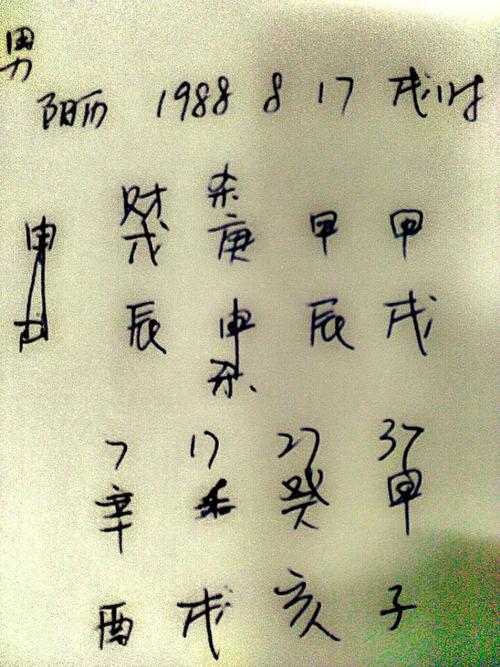 男
阳历 1988 8 17 戌时
财 杀
申 戊 庚 甲 甲
辰 申 辰 戌
杀
7 17 27 37
辛 癸 甲
酉 戌 亥 子